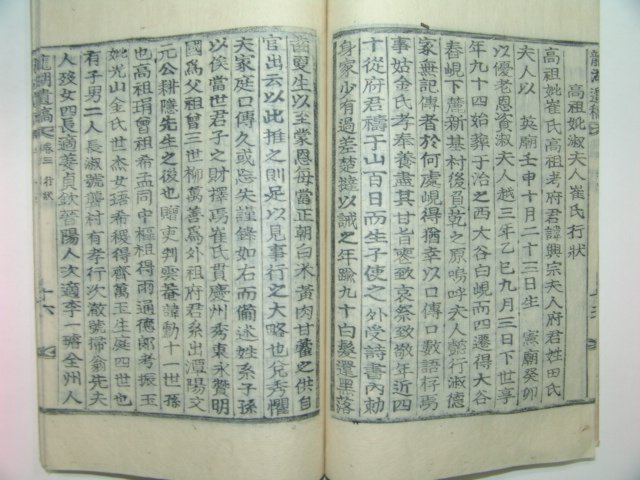 高祖妣淑夫人崔氏行狀
高祖妣崔氏高祖考府君諱興宗夫人府君姓田氏
夫人以 英廟壬申十月二十三日生 憲廟癸卯
以優老恩資淑夫人越三年乙巳九月三日下世享
年九十四始葬于治之西大谷白峴而四遷得大谷
春峴下蕭新基村後負乾之原嗚呼夫人懿行淑德
家無記傳者於何處峴得猶幸以口傳口數語存焉
事姑金氏孝奉養盡其甘旨喪致哀祭致敬年近四
十從府君禱于山百日而生子使之外受詩書內勅
身家少有過差楚撻以誡之年踰九十白髮還黑落
齒更生以至蒙恩每當正朝白米黃肉甘藿之供自
官出云以此推之則足以見事行之大略也允秀懼
夫家庭口傳久或忘失謹錄如右而備述姓系子孫
以俟當世君子之財擇焉崔氏貫慶州秀東永贊明
國爲父祖曾三世柳萬善爲外祖府君系出潭陽文
元公耕隱先生之後也贈吏判雲菴諱勳十一世孫
也高祖琄曾祖希孟同中樞祖得雨通德郎考振玉
妣光山金氏世杰女琄希稷得齊萬玉生庭四世也
有子男二人長淑號龔村有孝行次敵號掃翁先夫
人歿女四長適姜貞欽晉陽人次適李一瑞全州人
龍湖遺稿 卷三 行狀 十六